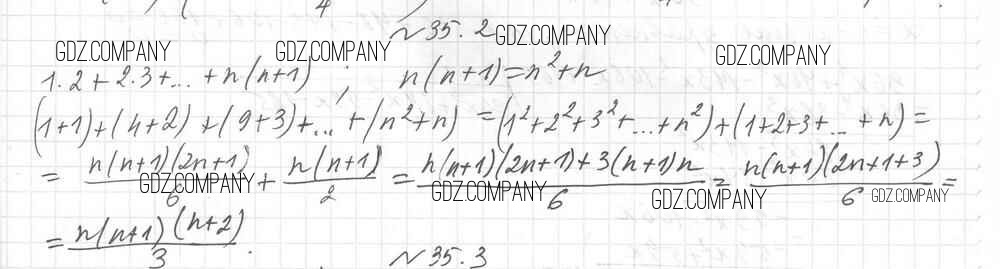 №35.2
GDZ.COMPANY GDZ.COMPANY GDZ.COMPANY GDZ.COMPANY
1·2+2·3+...+n(n+1) ; n(n+1)=n²+n
(1+1)+(4+2)+(9+3)+...+(n²+n) =(1²+2²+3²+...+n²)+(1+2+3+...+n)=
= n(n+1)(2n+1)/6 + n(n+1)/2 = n(n+1)(2n+1)+3(n+1)n/6 = n(n+1)(2n+1+3)/6 =
GDZ.COMPANY GDZ.COMPANY GDZ.COMPANY GDZ.COMPANY
= n(n+1)(n+2)/3.
№35.3